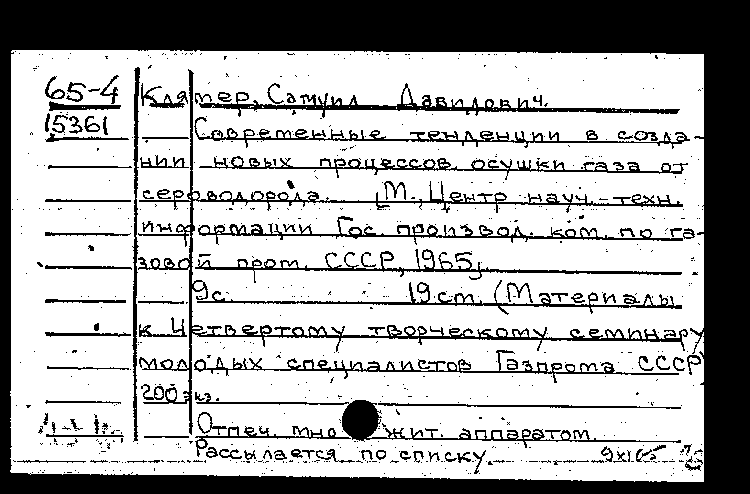 65-4
15361
Клятер, Самуил Давидович.
Современные тенденции в созда-
нии новых процессов осушки газа от
сероводорода. [М., Центр науч.-техн.
информации Гос. производ. ком. по га-
зовой пром. СССР, 1965].
9с. 19см. (Материалы
к Четвертому творческому семинару
молодых специалистов Газпрома СССР)
200 экз.
Отпеч. мно жит. аппаратом.
Рассылается по списку.